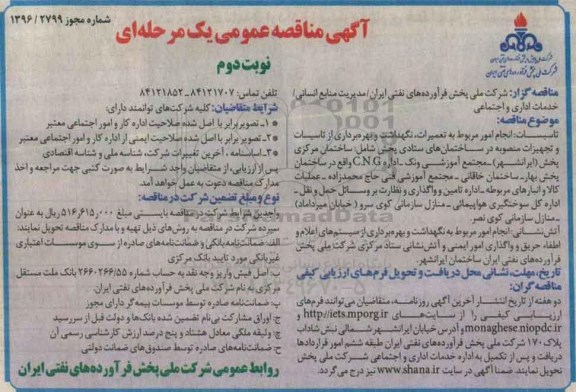 شماره مجوز ۲۷۹۹ / ۱۳۹۶
آگهی مناقصه عمومی یک مرحله‌ای
نوبت دوم
شرکت ملی پخش فرآورده‌های نفتی ایران
مناقصه گزار: شرکت ملی پخش فرآورده‌های نفتی ایران/مدیریت منابع انسانی/
خدمات اداری و اجتماعی
موضوع مناقصه:
تاسیسات: انجام امور مربوط به تعمیرات، نگهداشت و بهره‌برداری از تاسیسات
و تجهیزات منصوبه در ساختمان‌های ستادی پخش شامل: ساختمان مرکزی
پخش (ایرانشهر) ـ مجتمع آموزشی ونک ـ اداره CNG واقع در ساختمان
پخش بهار ـ ساختمان خاقانی ـ مجتمع آموزشی فنی حاج محمدزاده ـ عملیات
کالا و انبارهای مربوطه ـ اداره تامین و واگذاری و نظارت بر وسائل حمل و نقل ـ
اداره کل سوختگیری هواپیمائی ـ منازل سازمانی کوی سرو (خیابان میرداماد)
ـ منازل سازمانی کوی نصر.
آتش‌نشانی: انجام امور مربوط به نگهداشت و بهره‌برداری از سیستم‌های اعلام و
اطفاء حریق و واگذاری امور ایمنی و آتش‌نشانی ستاد مرکزی شرکت ملی پخش
فرآورده‌های نفتی ایران ساختمان ایرانشهر.
تاریخ، مهلت، نشانی محل دریافت و تحویل فرم‌های ارزیابی کیفی
مناقصه گران:
دو هفته از تاریخ انتشار آخرین آگهی روزنامه، متقاضیان می‌توانند فرم‌های
ارزیابی کیفی را از سایت‌های http://iets.mporg.ir و
monaghese.niopdc.ir و آدرس خیابان ایرانشهر شمالی نبش شاداب
پلاک ۱۷۰ شرکت ملی پخش فرآورده‌های نفتی ایران طبقه ششم امور قراردادها
دریافت و پس از تکمیل به اداره خدمات اداری و اجتماعی شرکت ملی پخش
تحویل نمایند. ضمناً آگهی در سایت www.shana.ir نیز درج می‌گردد.
تلفن تماس: ۸۴۱۲۱۷۰۷ ـ ۸۴۱۲۱۸۵۲
شرایط متقاضیان: کلیه شرکت‌های توانمند دارای:
۱ـ تصویر برابر با اصل شده صلاحیت اداره کار و امور اجتماعی معتبر
۲ـ تصویر برابر با اصل شده صلاحیت ایمنی از اداره کار و امور اجتماعی معتبر
۳ـ اساسنامه، آخرین تغییرات شرکت، شناسه ملی و شناسه اقتصادی
پس از ارزیابی، از متقاضیان واجد شرایط به صورت کتبی جهت مراجعه و اخذ
مدارک مناقصه دعوت به عمل خواهد آمد.
نوع و مبلغ تضمین شرکت در مناقصه:
واجدین شرایط شرکت در مناقصه بایستی مبلغ ۵۱۶٫۶۱۵٫۰۰۰ ریال به عنوان
سپرده شرکت در مناقصه به روش‌های ذیل تهیه و با مدارک مناقصه تحویل نمایند:
الف: ضمانت‌نامه بانکی و ضمانت‌نامه‌های صادره از سوی موسسات اعتباری
غیربانکی مورد تایید بانک مرکزی
ب: اصل فیش واریز وجه نقد به حساب شماره ۲۶۶۰۲۶۶/۵۵ بانک ملت مستقل
مرکزی به نام شرکت ملی پخش فرآورده‌های نفتی ایران.
پ: ضمانت‌نامه صادره توسط موسسات بیمه‌گر دارای مجوز
ج: اوراق مشارکت بی‌نام تضمین شده بانک‌ها و دولت قبل از سررسید
چ: وثیقه ملکی معادل هشتاد و پنج درصد ارزش کارشناسی رسمی آن
ح: ضمانت‌نامه‌های صادره توسط صندوق‌های ضمانت دولتی
روابط عمومی شرکت ملی پخش فرآورده‌های نفتی ایران